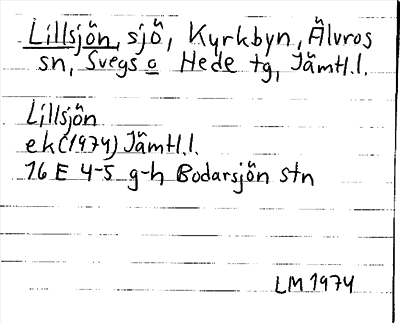 Lillsjön, sjö, Kyrkbyn, Älvros
sn, Svegs o Hede tg, Jämtl.l.
Lillsjön
ek (1974) Jämtl.l.
16 E 4-5 g-h Bodarsjön stn
LM 1974